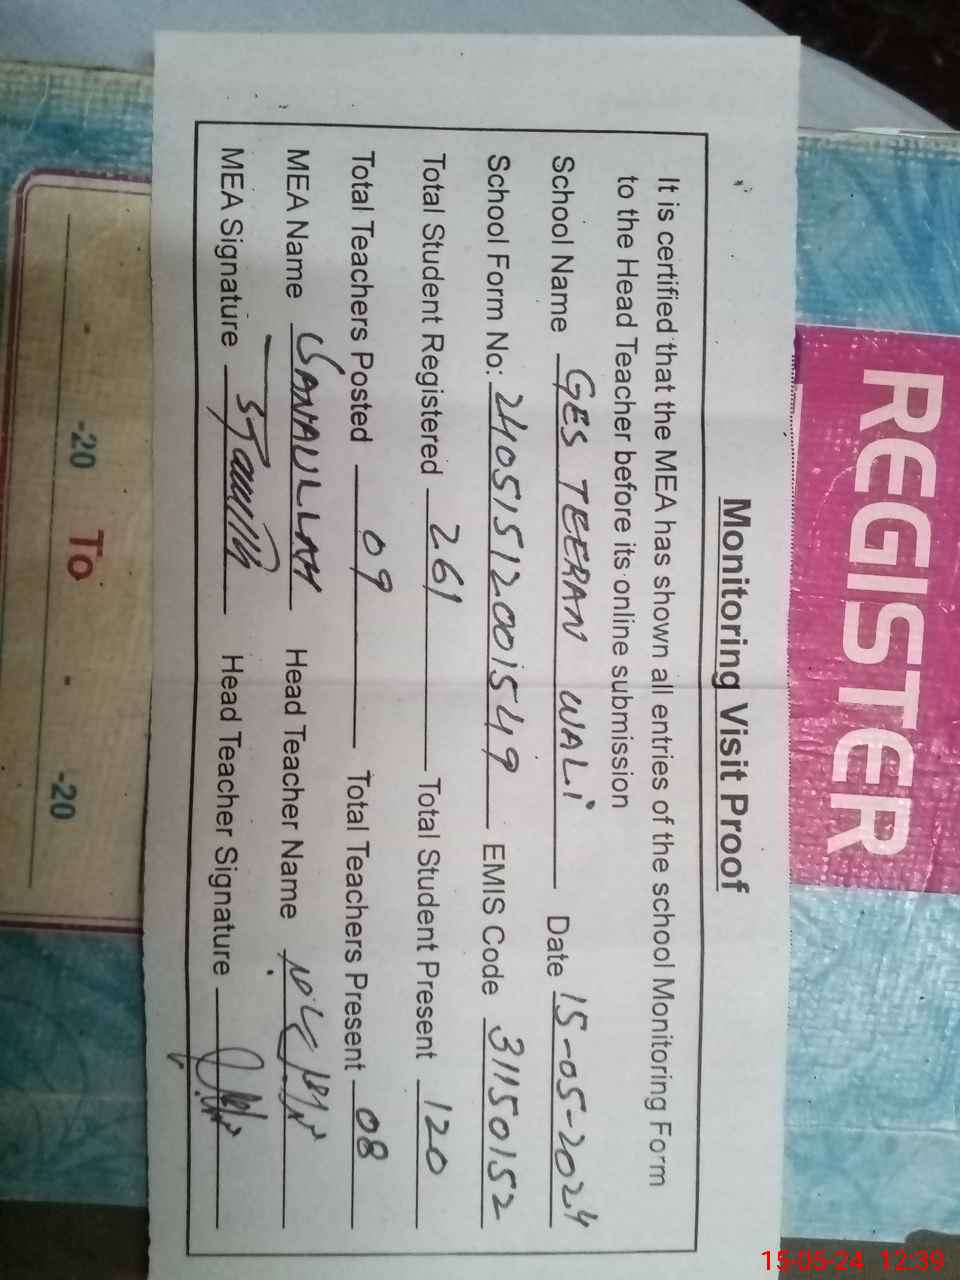 REGISTER
Monitoring Visit Proof
It is certified that the MEA has shown all entries of the school Monitoring Form
to the Head Teacher before its online submission
School Name GES TEERAN WALi Date 15-05-2024
School Form No: 24051512001549 EMIS Code 31150152
Total Student Registered 261 Total Student Present 120
Total Teachers Posted 09 Total Teachers Present 08
MEA Name SANAULLAH Head Teacher Name
MEA Signature Head Teacher Signature
- -20 To - -20
15-05-24 12:39